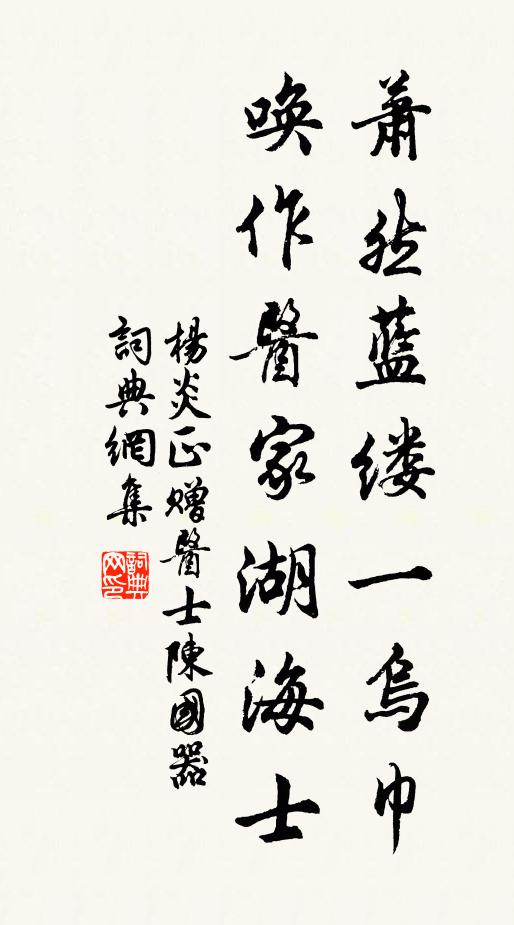 蕭然藍缕一烏巾
唤作醫家湖海士
楊炎正赠醫士陳國器
詞典網集
詞典网印